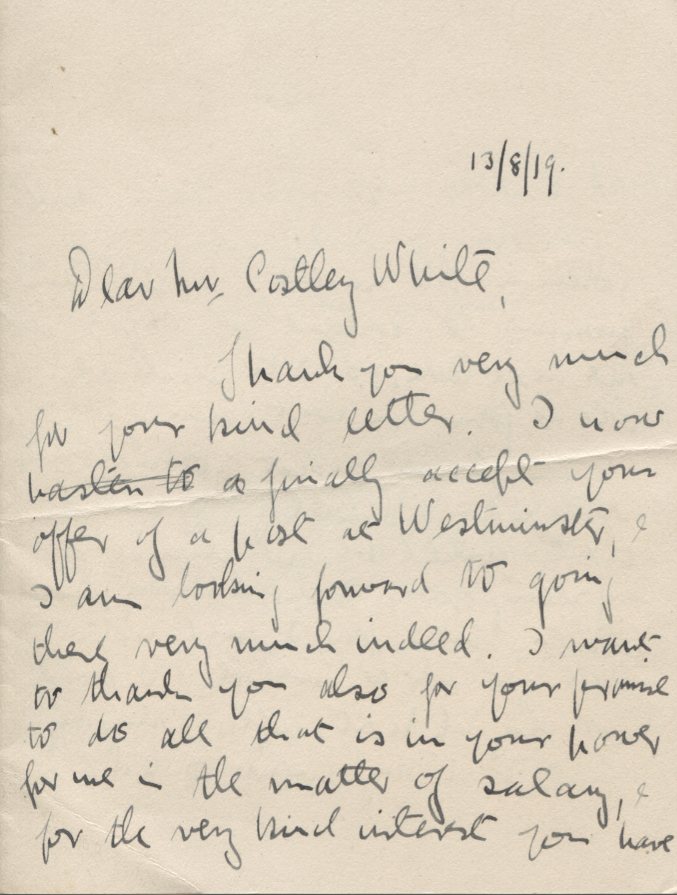 13/8/19.
Dear Mr. Costley White,
Thank you very much
for your kind letter. I now
hasten to finally accept your
offer of a post at Westminster, &
I am looking forward to going
there very much indeed. I want
to thank you also for your promise
to do all that is in your power
for me in the matter of salary, &
for the very kind interest you have